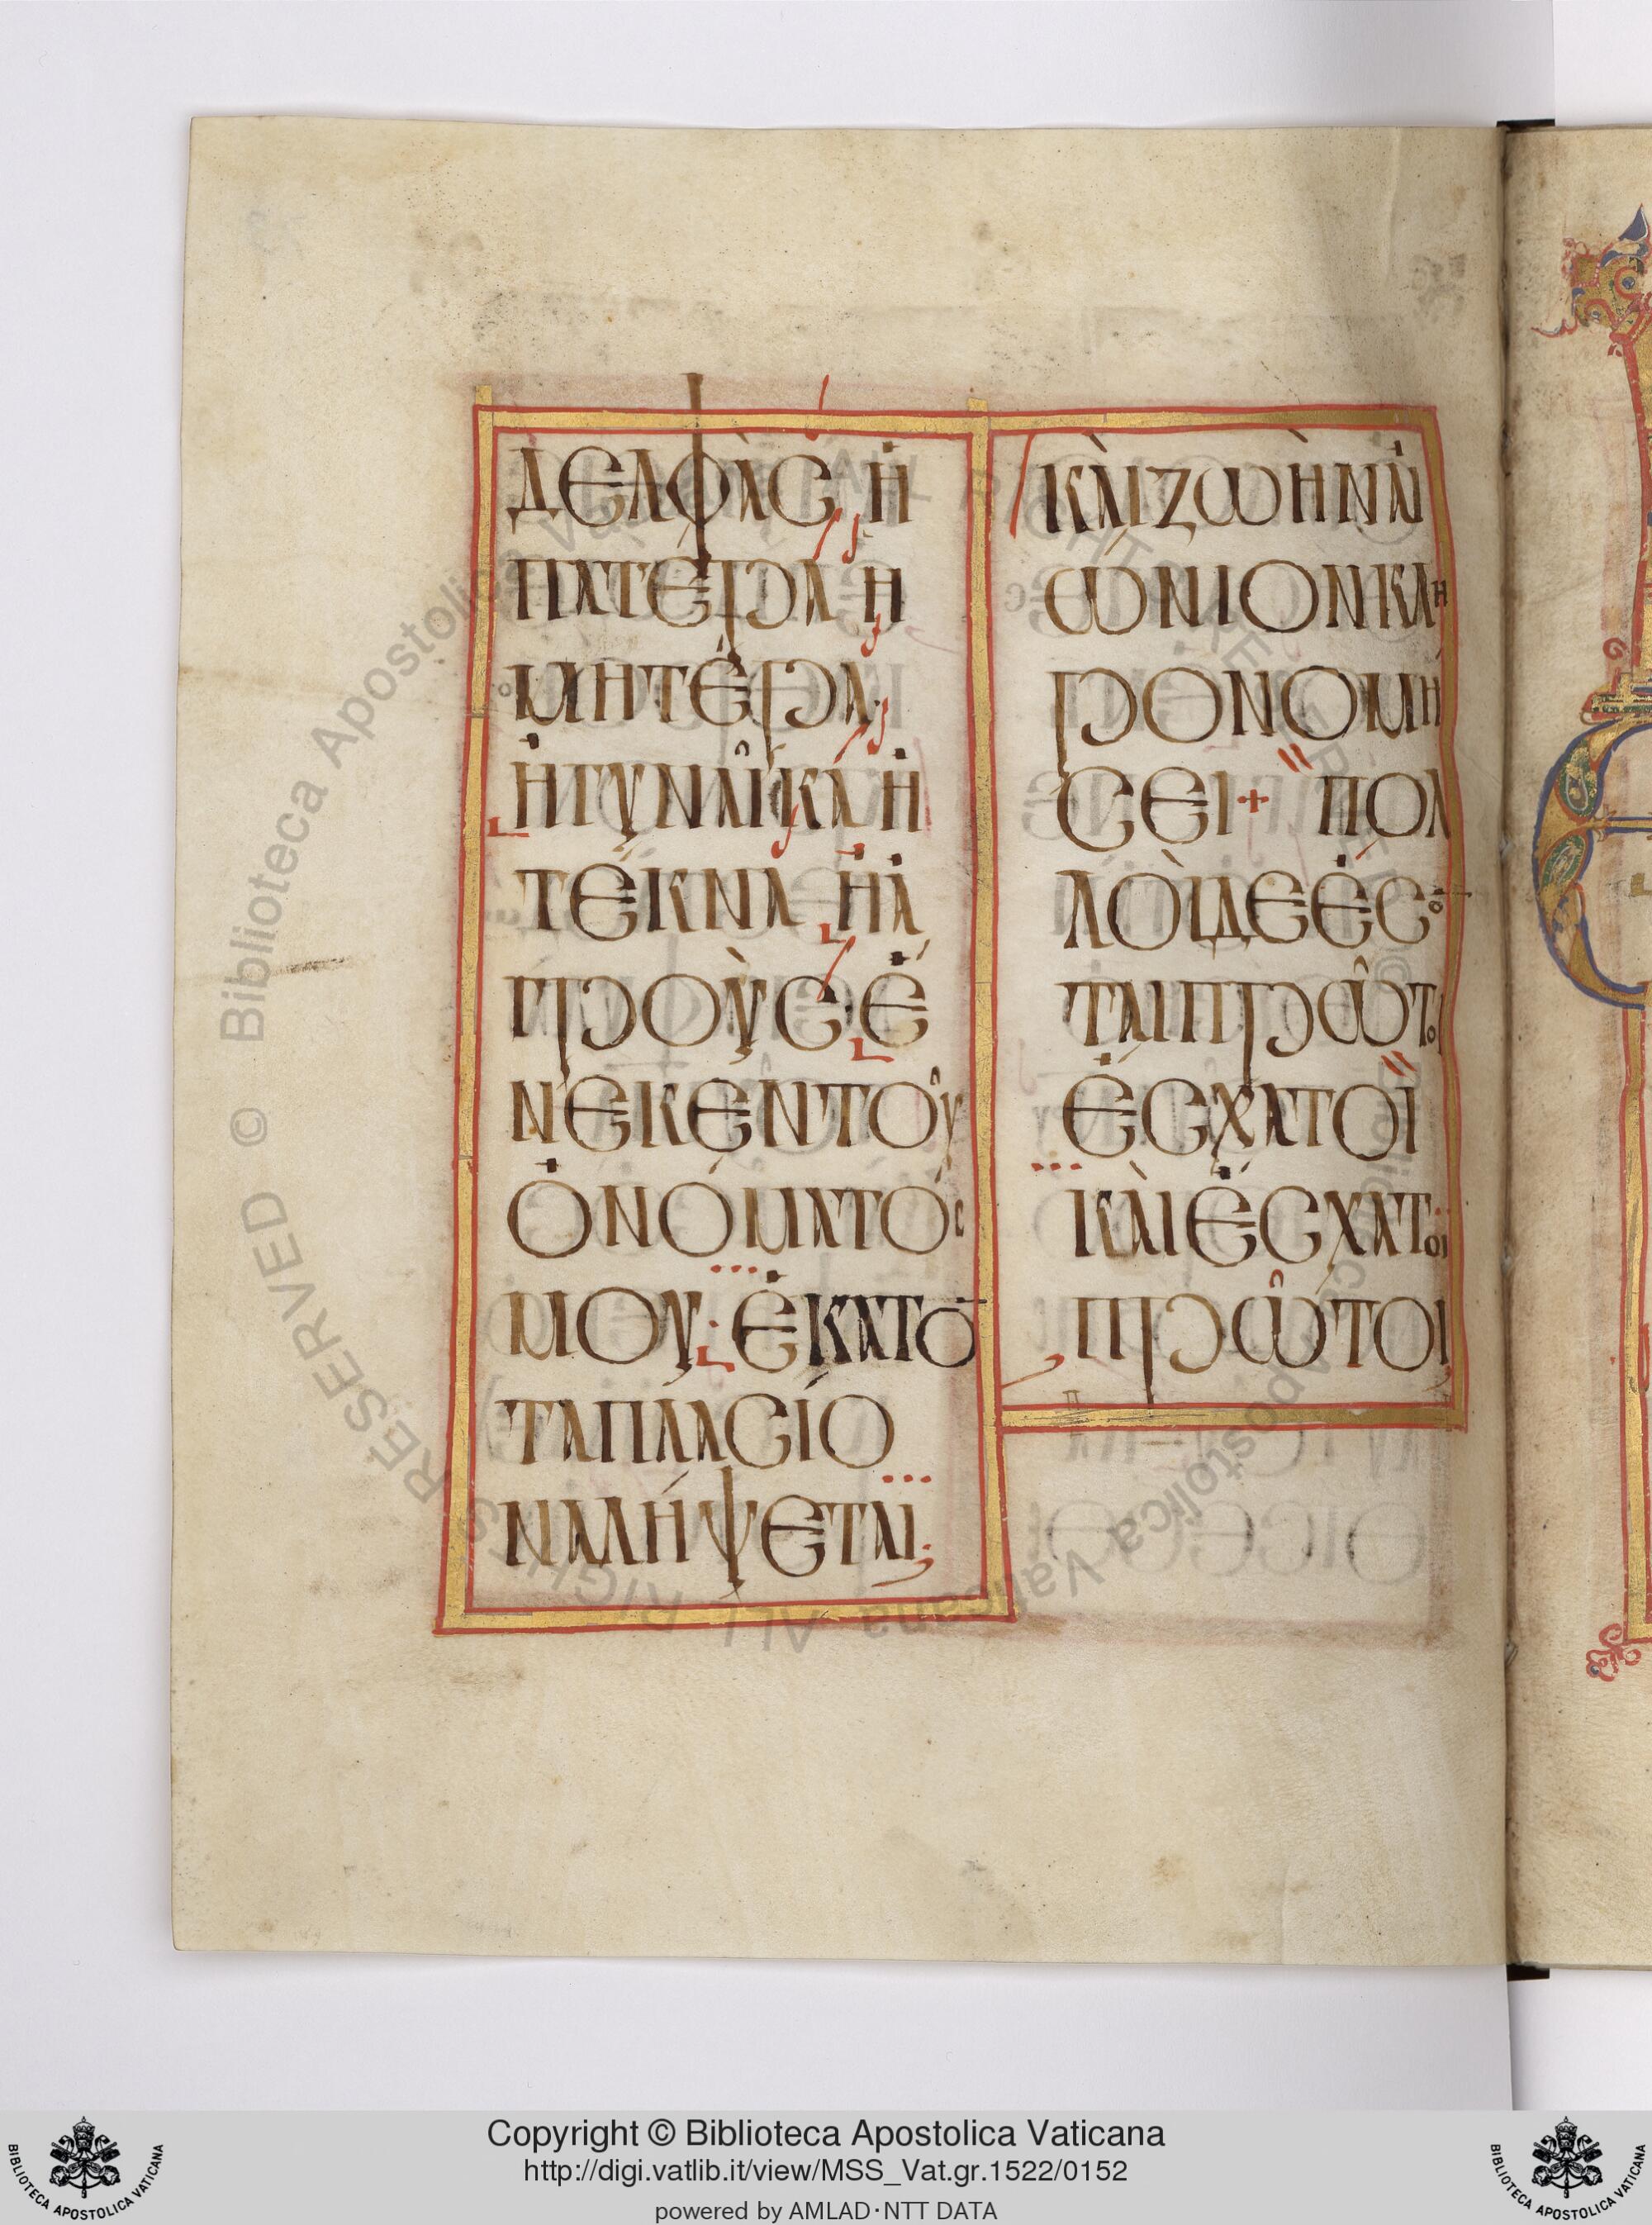 ΔΕΛΦὰΣ Ἢ
ΠΑΤΈΡΑ Ἢ
ΜΗΤΈΡΑ
ἪΓΥΝΑῖΚΑ Ἢ
ΤΈΚΝΑ ἪἈ
ΓΡΟὺΣ Ἕ
ΝΕΚΕΝΤΟῦ
ὈΝΌΜΑΤΌΣ
ΜΟΥ· ἙΚΑΤΟ̅
ΤΑΠΛΑΣΊΟ
ΝΑΛΉΨΕΤΑΙ·
ΚΑὶΖΩῊΝΑἰ
ΏΝΙΟΝΚΛΗ
ΡΟΝΟΜΉ
ΣΕΙ+ ΠΟΛ
ΛΟὶΔΕἜΣΟ̅
ΤΑΙΠΡῶΤΟΙ
ἜΣΧΑΤΟΙ
ΚΑὶἜΣΧΑΤΟΙ
ΠΡῶΤΟΙ
Biblioteca Apostolica Vaticana ALL RIGHTS RESERVED ©
Copyright © Biblioteca Apostolica Vaticana
http://digi.vatlib.it/view/MSS_Vat.gr.1522/0152
powered by AMLAD·NTT DATA
BIBLIOTECA APOSTOLICA VATICANA
BIBLIOTECA APOSTOLICA VATICANA